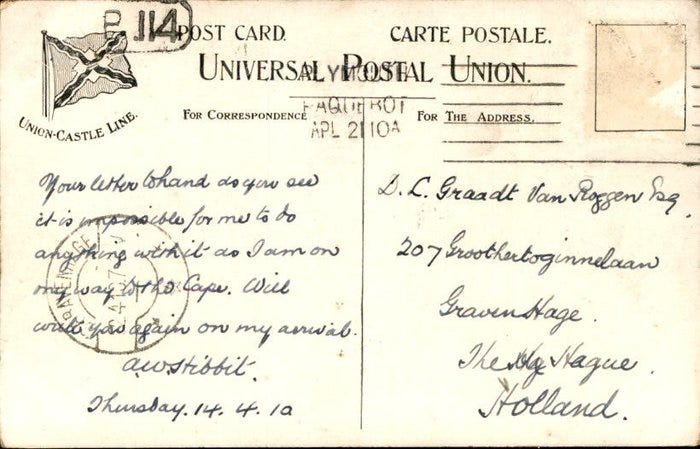 114
POST CARD.
CARTE POSTALE.
UNIVERSAL POSTAL UNION.
UNION-CASTLE LINE.
FOR CORRESPONDENCE
FOR THE ADDRESS.
PAQUEBOT
APL 21 10A
Your letter to hand as you see
it is impossible for me to do
anything with it as I am on
my way to the Cape. Will
write you again on my arrival.
AW Stibbit.
Thursday. 14. 4. 10
D. C. Graadt Van Roggen Esq
207 Groothertoginnelaan
Graven Hage.
The Hague.
Holland.